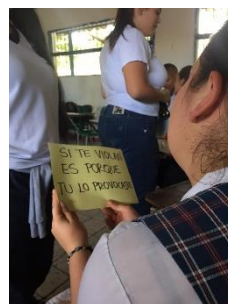 SI TE VIOLAN
ES PORQUE
TU LO PROVOCAS